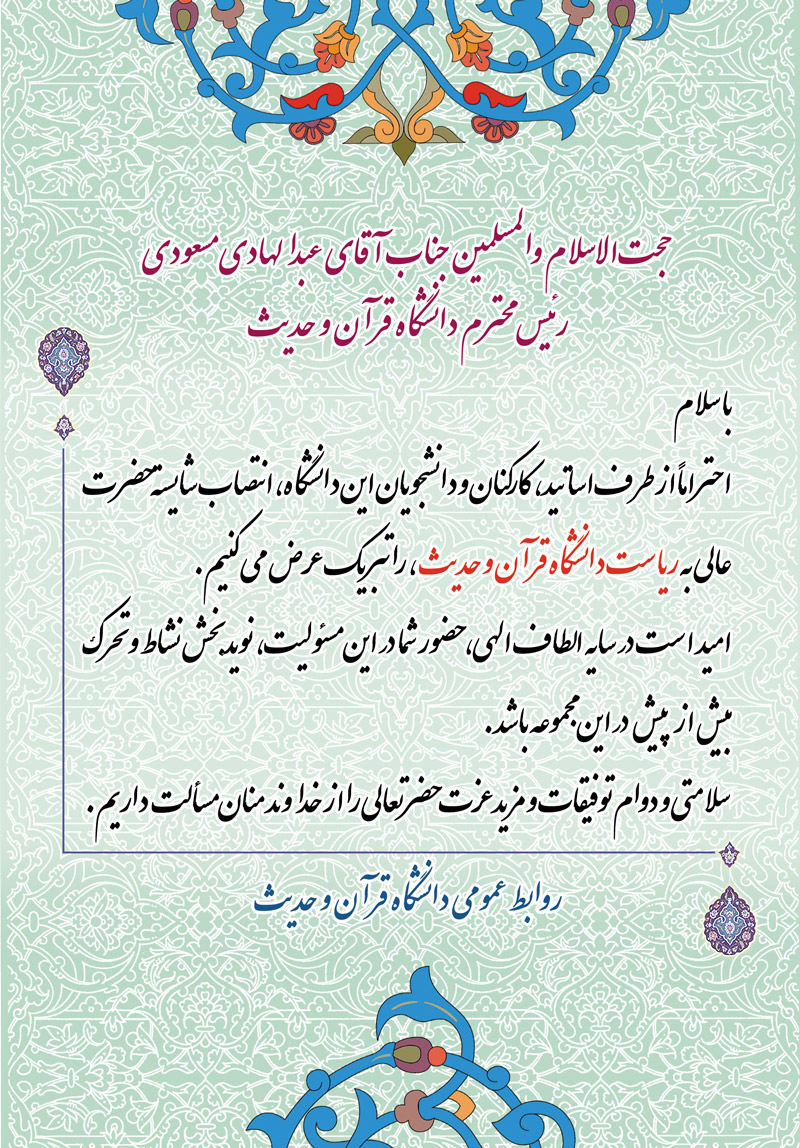 حجت‌الاسلام والمسلمین جناب آقای عبدالهادی مسعودی
رئیس محترم دانشگاه قرآن و حدیث
باسلام
احتراماً از طرف اساتید، کارکنان و دانشجویان این دانشگاه، انتصاب شایسته حضرت
عالی به ریاست دانشگاه قرآن و حدیث، را تبریک عرض می کنیم.
امید است در سایه الطاف الهی، حضور شما در این مسئولیت، نویدبخش نشاط و تحرک
بیش از پیش در این مجموعه باشد.
سلامتی و دوام توفیقات و مزید عزت حضرتعالی را از خداوند منان مسألت داریم.
روابط عمومی دانشگاه قرآن و حدیث